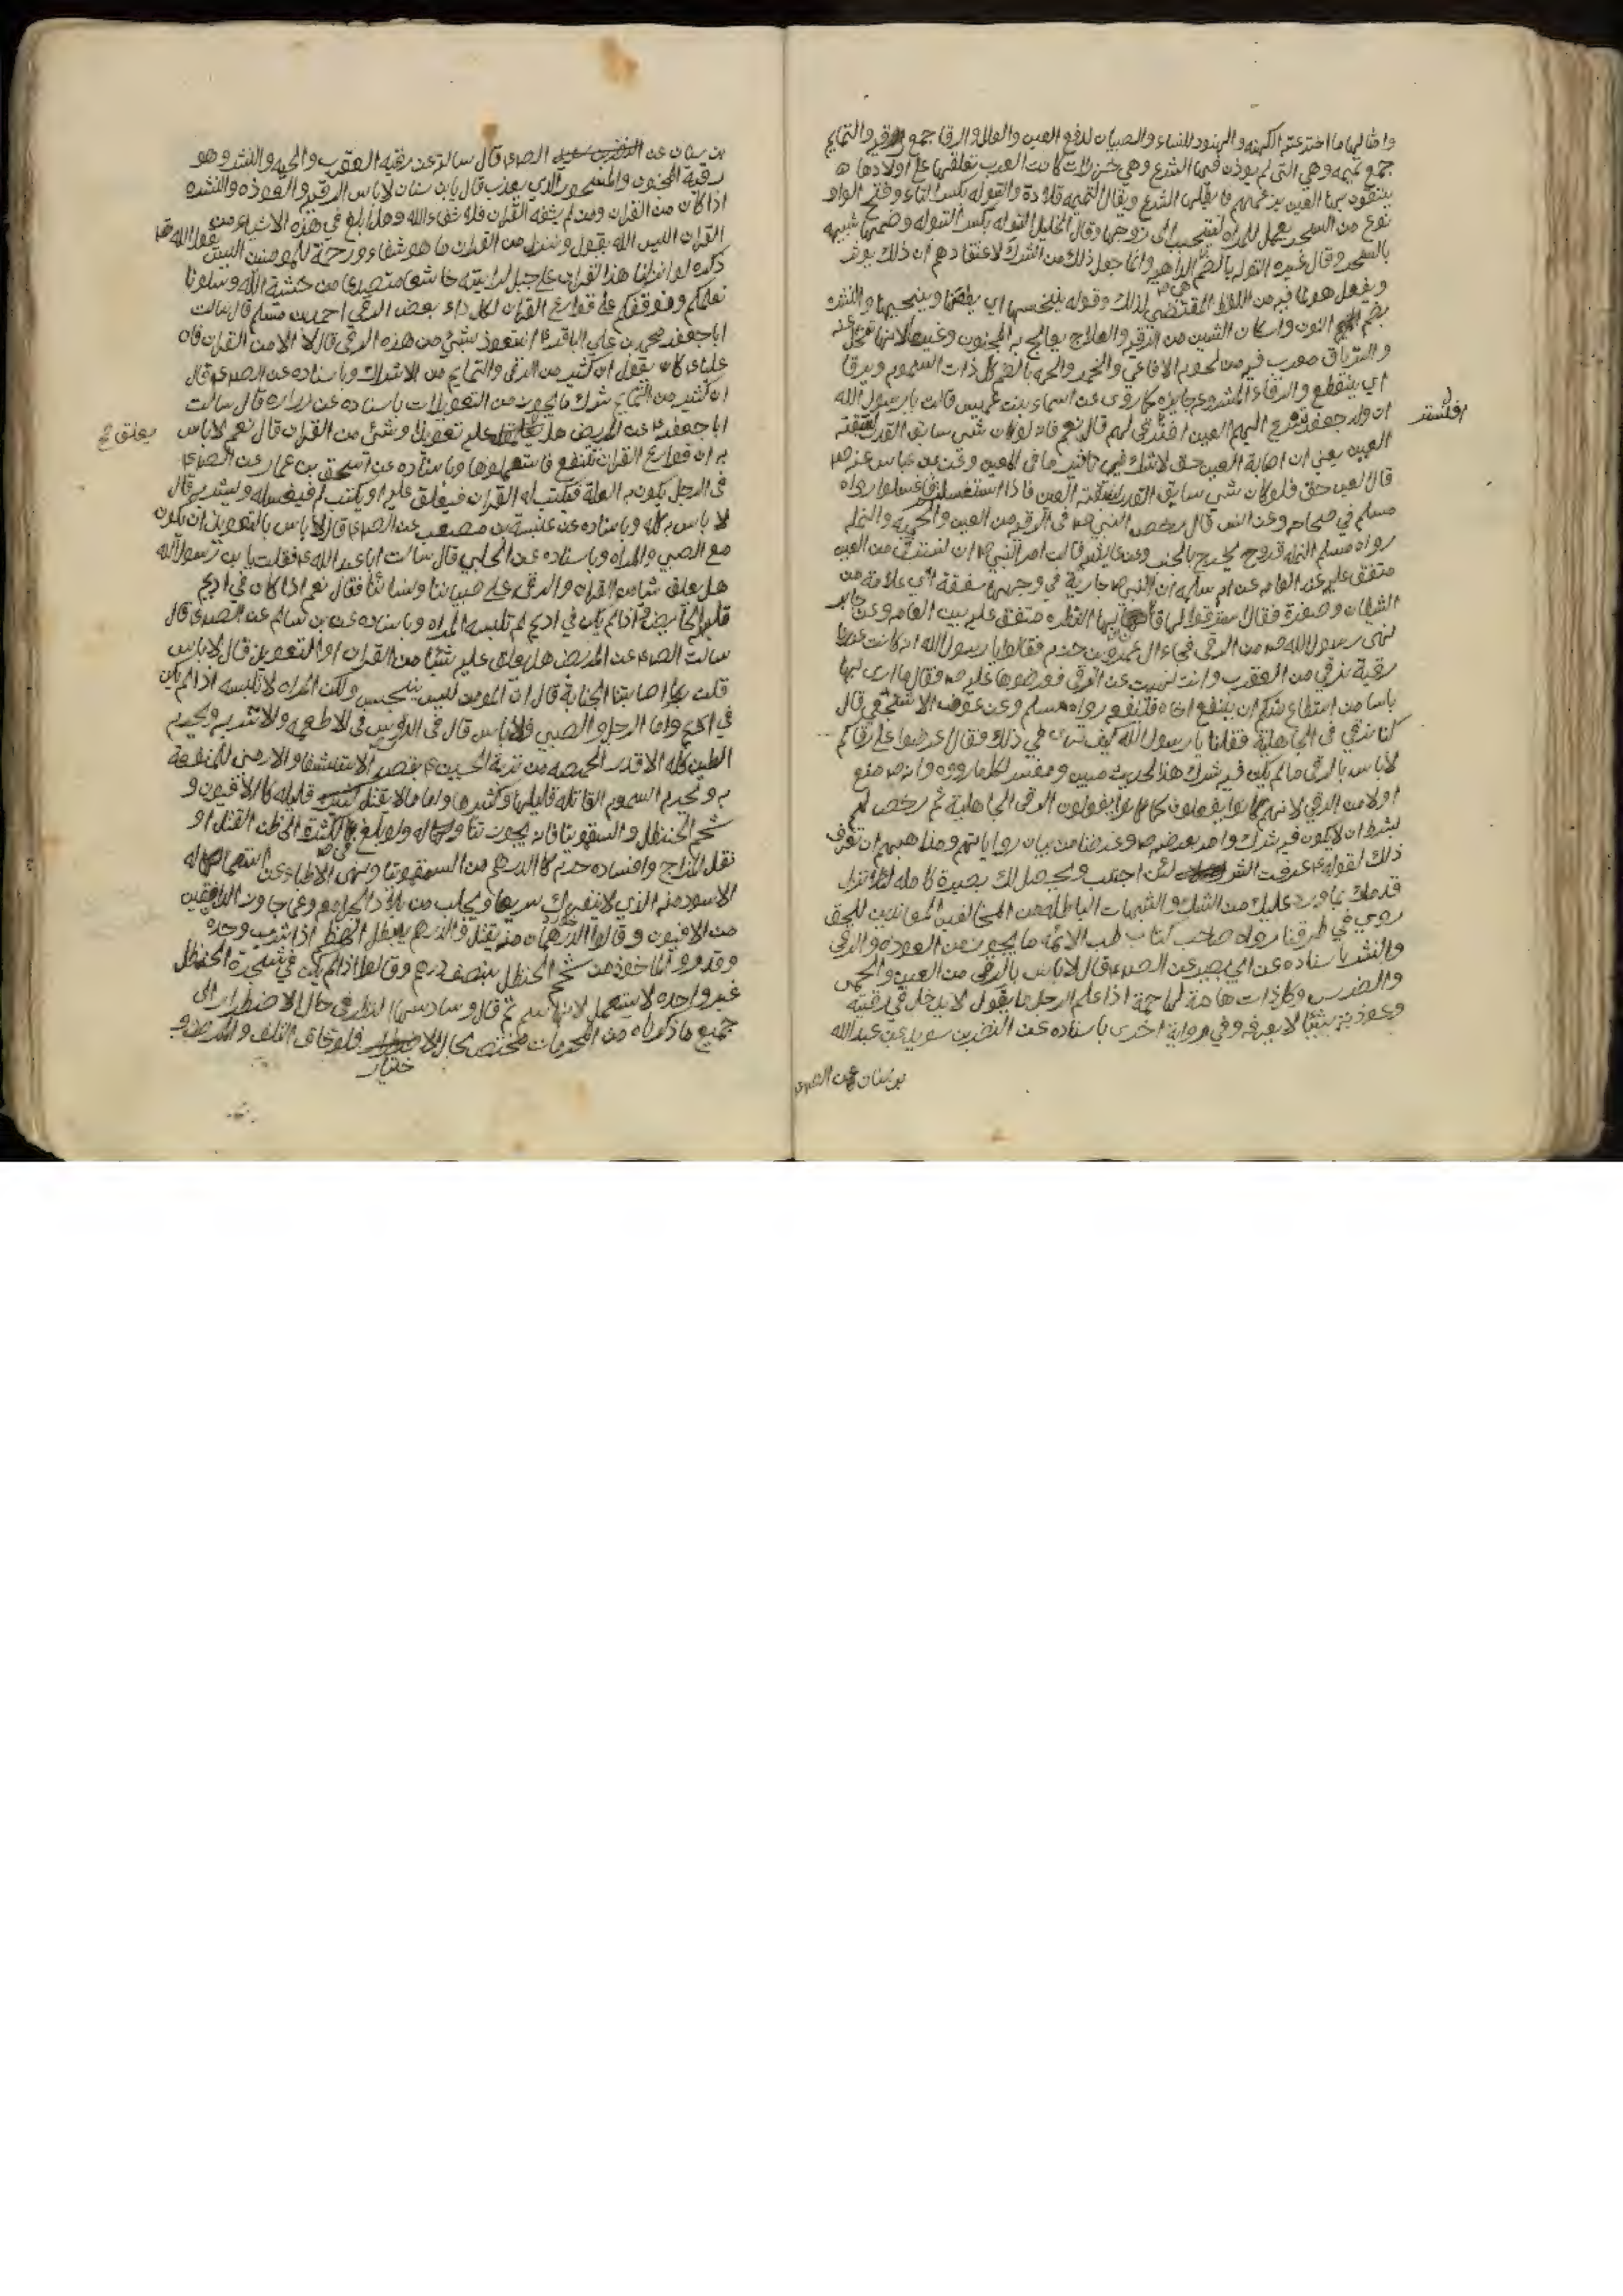 وامثالها ما اخترعته الكهنه والهنود للنساء والصبيان لدفع العين والعلل والرقا جمع الرقيه والتمايم
جمع تميمه وهي التي لم يوذن فيها الشرع وهي خرزات كانت العرب تعلقها على اولادها
يتقون بها العين بزعمهم فابطلها الشرع ويقال التميمه قلادة والتوله بكسر التاء وفتح الواو
نوع من السحر يعمل للمراه لتتحبب الى زوجها وقال الخليل التوله بكسر التوله وضمها شبيه
بالسحر وقال غيره التوله بالضم الداهيه وانما جعل ذلك من الشرك لاعتقادهم ان ذلك يوثر
ويفعل هو لما فيه من اللفظ المقتضي لذلك وقوله ينخسها اي يطعنها وينحيها والنشره
بضم النون واسكان الشين من الرقيه والعلاج يعالج به المجنون وغيره لانها تحل عنه
والترياق معرب فيه من لحوم الافاعي والخمر والحمه بالضم كل ذات السموم ويرقا
اي ينقطع والرقاء المشروعه جايزه كما روى عن اسماء بنت عميس قالت يا رسول الله
ان ولد جعفر تسرع اليهم العين افنرقي لهم قال نعم فانه لو كان شي سابق القدر لسبقته
العين يعني ان اصابة العين حق لاشك فيها تاثير ما في العين وعن بن عباس عنه ص
قال العين حق فلو كان شي سابق القدر لسبقته العين فاذا استغسلتم فاغسلوا رواه
مسلم في صحاحه وعن انس قال رخص النبي ص في الرقيه من العين والحمه والنمله
رواه مسلم النمله قروح يخرج بالجنب وعن عايشه قالت امر النبي ص ان نسترقي من العين
متفق عليه عند العامه عن ام سلمه ان النبي ص جارية في وجهها سفعة اي علامة من
الشيطان وصفرة فقال استرقوا لها فان بها النظره متفق عليه بين العامه وعن جابر
نهى رسول الله ص من الرقى فجاء ال عمرو بن حزم فقالوا يا رسول الله انه كانت عندنا
رقية نرقي من العقرب وانت نهيت عن الرقى فعرضوها عليه ص فقال ما ارى بها
باسا من استطاع منكم ان ينفع اخاه فلينفعه رواه مسلم وعن عوف الاشجعي قال
كنا نرقي في الجاهلية فقلنا يا رسول الله كيف ترى في ذلك فقال اعرضوا علي رقاكم
لا باس بالرقى ما لم يكن فيه شرك هذا الحديث مبين ومفسر لكل ما رووه وانه ص منع
اولا من الرقي لانهم كانوا يفعلون كما كانوا يفعلون الرقى الجاهلية ثم رخص لهم
بشرط ان لا يكون فيه شرك وغرضنا من بيان رواياتهم ومذاهبهم ان تعرف
ذلك لقوله ع عرفت الشر لئن اجتنب ويحصل لك بصيرة كامله لئلا تزل
قدمك بما ورد عليك من الشك والشبهات الباطله من المخالفين المعاندين للحق
روي في طرقنا رواه صاحب كتاب طب الائمه ما يجوز من العوذه والرقي
والنشر باسناده عن ابي بصير عن الصم قال لا باس بالرقي من العين والحمى
والضرس وكل ذات هامة لها حمة اذا علم الرجل ما يقول لا يدخل في رقيته
وعوذته شيئا لا يعرفه وفي رواية اخرى باسناده عن النضر بن سويد عن عبد الله
بن سنان عن الصم
بن سنان عن الصم قال سالته عن رقيه العقرب والحيه والنشر وهو
رقية المجنون والمسحور الذي يعذب قال يا بن سنان لا باس الرقيه والعوذه والنشره
اذا كان من القران ومن لم يشفه القران فلا شفاء الله وهل ابلغ في هذه الاشياء من
القران اليس الله يقول وننزل من القران ما هو شفاء ورحمة للمومنين اليس يقول الله
ذكره لو انزلنا هذا القران على جبل لرايته خاشعا متصدعا من خشية الله وسلونا
نعلمكم ونوقفكم على قوارع القران لكل داء بعض الرقي احمد بن مسلم قال سالت
ابا جعفر محمد بن علي الباقر ع انتعوذ بشئ من هذه الرقى قال لا الا من القران فان
عليا ع كان يقول ان كثير من الرقى والتمايم من الاشراك وباسناده عن الصم قال
ان كثير من التمايم شرك ما يجوز من التعويذات باسناده عن زراره قال سالت
ابا جعفر ع عن المريض هل عليه تعويذ او شئ من القران قال نعم لا باس
به ان قوارع القران تنفع فاستعملوها وباسناده عن اسحق بن عمار عن الصم
في الرجل يكون به العلة فيكتب له القران فيعلق عليه او يكتب له فيغسله ويشربه قال
لا باس به كله وباسناده عن عنبسة بن مصعب عن الصم قال لا باس بالتعويذ ان يكون
مع الصبي والمراه وباسناده عن الحلبي قال سالت ابا عبد الله ع فقلت يا بن رسول الله
هل يعلق شيا من القران والرقى على صبياننا ونسائنا فقال نعم اذا كان في اديم
تلبسه الحايض واذا لم يكن في اديم لم تلبسه المراه وباسناده عن بن سالم عن الصم قال
سالت الصم عن المريض هل يعلق عليه شيئا من القران او التعويذ قال لا باس
قلت ربما اصابتنا الجنابة قال ان المومن ليس ينجس ولكن المراه لا تلبسه اذا لم يكن
في اديم واما الرجل والصبي فلا باس قال في الدروس في الاطعمه والاشربه ويحرم
الطين كله الا قدر الحمصه من تربة الحسين ع بقصد الاستشفا والارمني للمنفعة
به ويحرم السموم القاتله قليلها وكثيرها واما ما لا يقتل قليله كالافيون و
شحم الحنظل والسقمونيا فانه يجوز تناوله ولو بلغ في الكثرة الى ظن القتل او
ثقل المزاج وافساده حرم كالدرهم من السقمونيا ونهى الاطباء عن استعماله
الاسود منه الذي لا ينفرك سريعا ويجلب من بلاد الجرامقه وعما جاوز الدانقين
من الافيون وقالوا الدرهمان منه يقتل والدرهم يبطل الهضم اذا شرب وحده
وقدروا الماخوذ من شحم الحنظل بنصف درهم وقالوا اذا لم يكن في شجرة الحنظل
غير واحده لا يستعمل لانها سم ثم قال وسادسها النظر في حال الاضطرار الى
جميع ما ذكرناه من المحرمات مختص بحال الاختيار فلو خاف التلف والمرض و